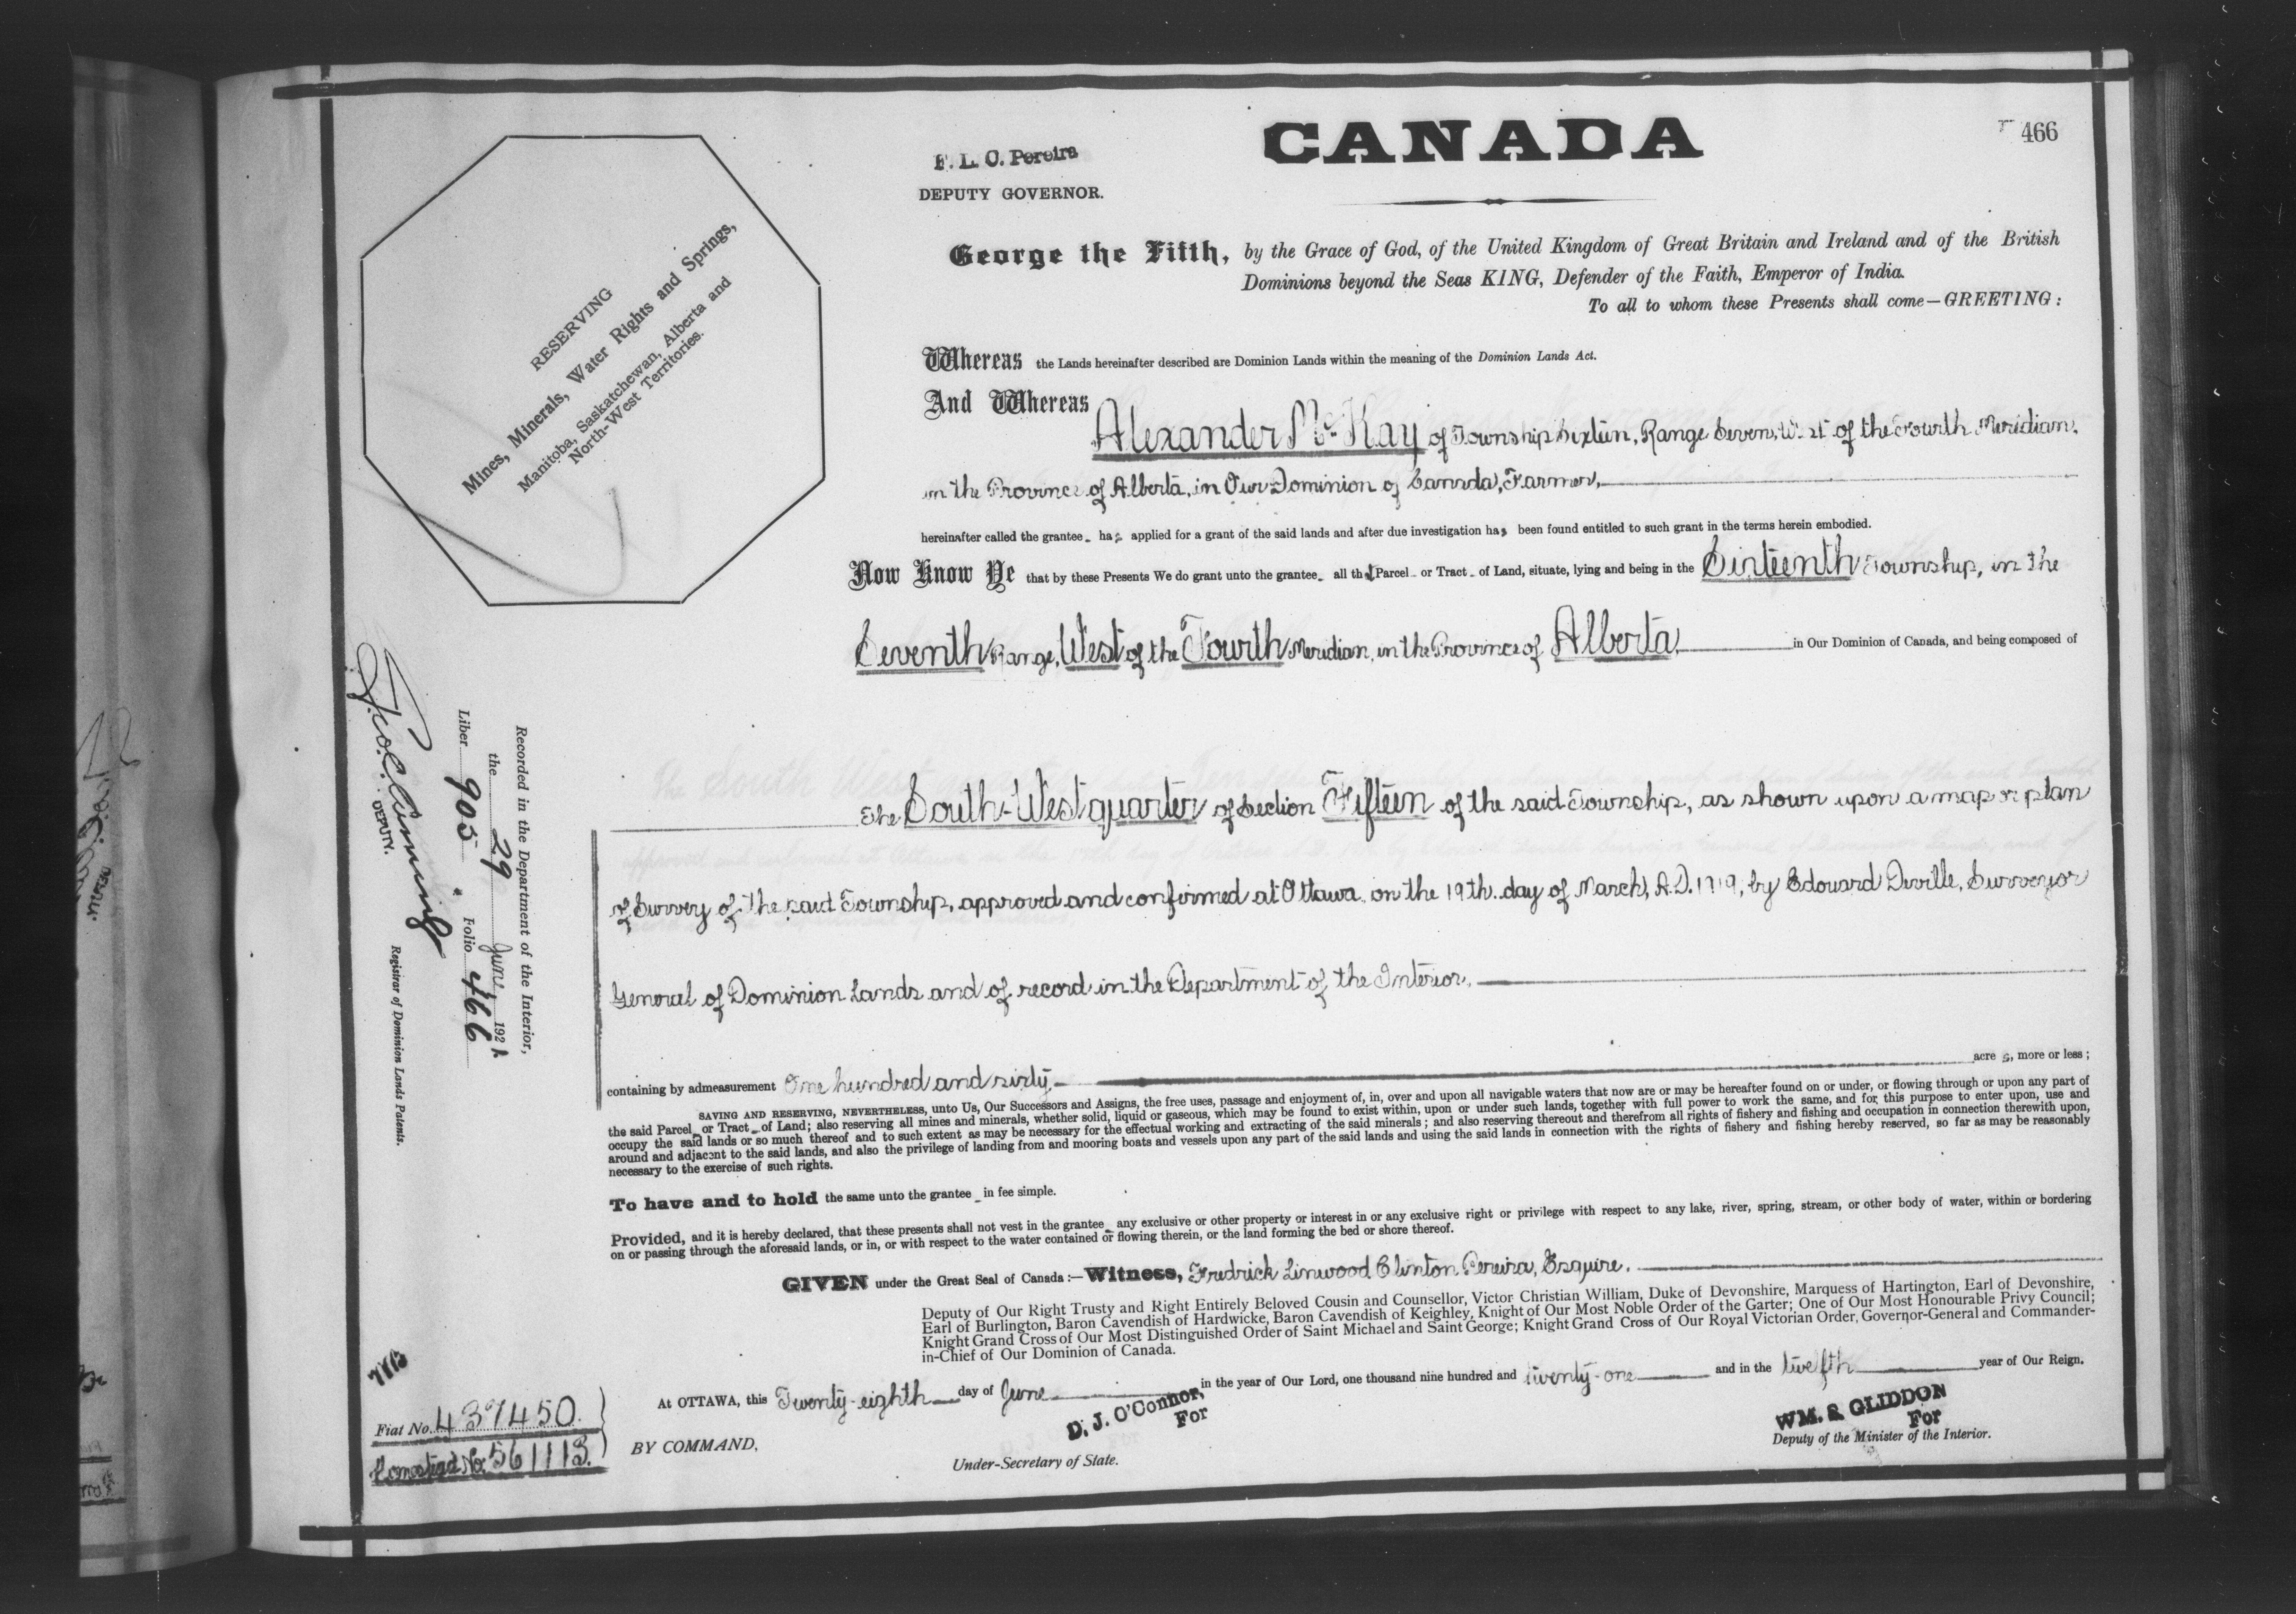 466
CANADA
F. L. C. Pereira
DEPUTY GOVERNOR.
George the Fifth, by the Grace of God, of the United Kingdom of Great Britain and Ireland and of the British
Dominions beyond the Seas KING, Defender of the Faith, Emperor of India.
To all to whom these Presents shall come—GREETING:
RESERVING
Mines, Minerals, Water Rights and Springs,
Manitoba, Saskatchewan, Alberta and
North-West Territories.
Whereas the Lands hereinafter described are Dominion Lands within the meaning of the Dominion Lands Act.
And Whereas
Alexander McKay of Township Sixteen, Range Seven, West of the Fourth Meridian,
in the Province of Alberta, in Our Dominion of Canada, Farmer,
hereinafter called the grantee has applied for a grant of the said lands and after due investigation has been found entitled to such grant in the terms herein embodied.
Now Know Ye that by these Presents We do grant unto the grantee all that Parcel or Tract of Land, situate, lying and being in the Sixteenth Township, in the
Seventh Range, West of the Fourth Meridian, in the Province of Alberta, in Our Dominion of Canada, and being composed of
The South-West quarter of Section Fifteen of the said Township, as shown upon a map or plan
of Survey of the said Township, approved and confirmed at Ottawa, on the 19th. day of March, A.D. 1919, by Edouard Deville, Surveyor
General of Dominion Lands and of record in the Department of the Interior,
containing by admeasurement One hundred and sixty, acres, more or less;
SAVING AND RESERVING, NEVERTHELESS, unto Us, Our Successors and Assigns, the free uses, passage and enjoyment of, in, over and upon all navigable waters that now are or may be hereafter found on or under, or flowing through or upon any part of
the said Parcel or Tract of Land; also reserving all mines and minerals, whether solid, liquid or gaseous, which may be found to exist within, upon or under such lands, together with full power to work the same, and for this purpose to enter upon, use and
occupy the said lands or so much thereof and to such extent as may be necessary for the effectual working and extracting of the said minerals; and also reserving thereout and therefrom all rights of fishery and fishing and occupation in connection therewith upon,
around and adjacent to the said lands, and also the privilege of landing from and mooring boats and vessels upon any part of the said lands and using the said lands in connection with the rights of fishery and fishing hereby reserved, so far as may be reasonably
necessary to the exercise of such rights.
To have and to hold the same unto the grantee in fee simple.
Provided, and it is hereby declared, that these presents shall not vest in the grantee any exclusive or other property or interest in or any exclusive right or privilege with respect to any lake, river, spring, stream, or other body of water, within or bordering
on or passing through the aforesaid lands, or in, or with respect to the water contained or flowing therein, or the land forming the bed or shore thereof.
GIVEN under the Great Seal of Canada:—Witness, Fredrick Linwood Clinton Pereira, Esquire.
Deputy of Our Right Trusty and Right Entirely Beloved Cousin and Counsellor, Victor Christian William, Duke of Devonshire, Marquess of Hartington, Earl of Devonshire,
Earl of Burlington, Baron Cavendish of Hardwicke, Baron Cavendish of Keighley, Knight of Our Most Noble Order of the Garter; One of Our Most Honourable Privy Council;
Knight Grand Cross of Our Most Distinguished Order of Saint Michael and Saint George; Knight Grand Cross of Our Royal Victorian Order, Governor-General and Commander-
in-Chief of Our Dominion of Canada.
At OTTAWA, this Twenty-eighth day of June in the year of Our Lord, one thousand nine hundred and twenty-one and in the twelfth year of Our Reign.
BY COMMAND,
D. J. O'Connor,
For
Under-Secretary of State.
WM. S. GLIDDON
For
Deputy of the Minister of the Interior.
Recorded in the Department of the Interior,
the 29 June 1921
Liber 905 Folio 466
DEPUTY.
Registrar of Dominion Lands Patents.
Fiat No. 437450.
Homestead No. 561113.